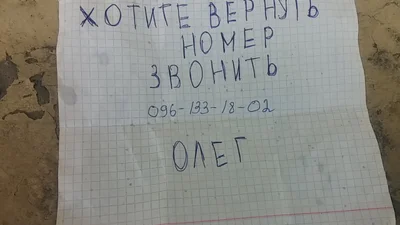 ХОТИТЕ ВЕРНУТЬ
НОМЕР
ЗВОНИТЬ
096-133-18-02
ОЛЕГ